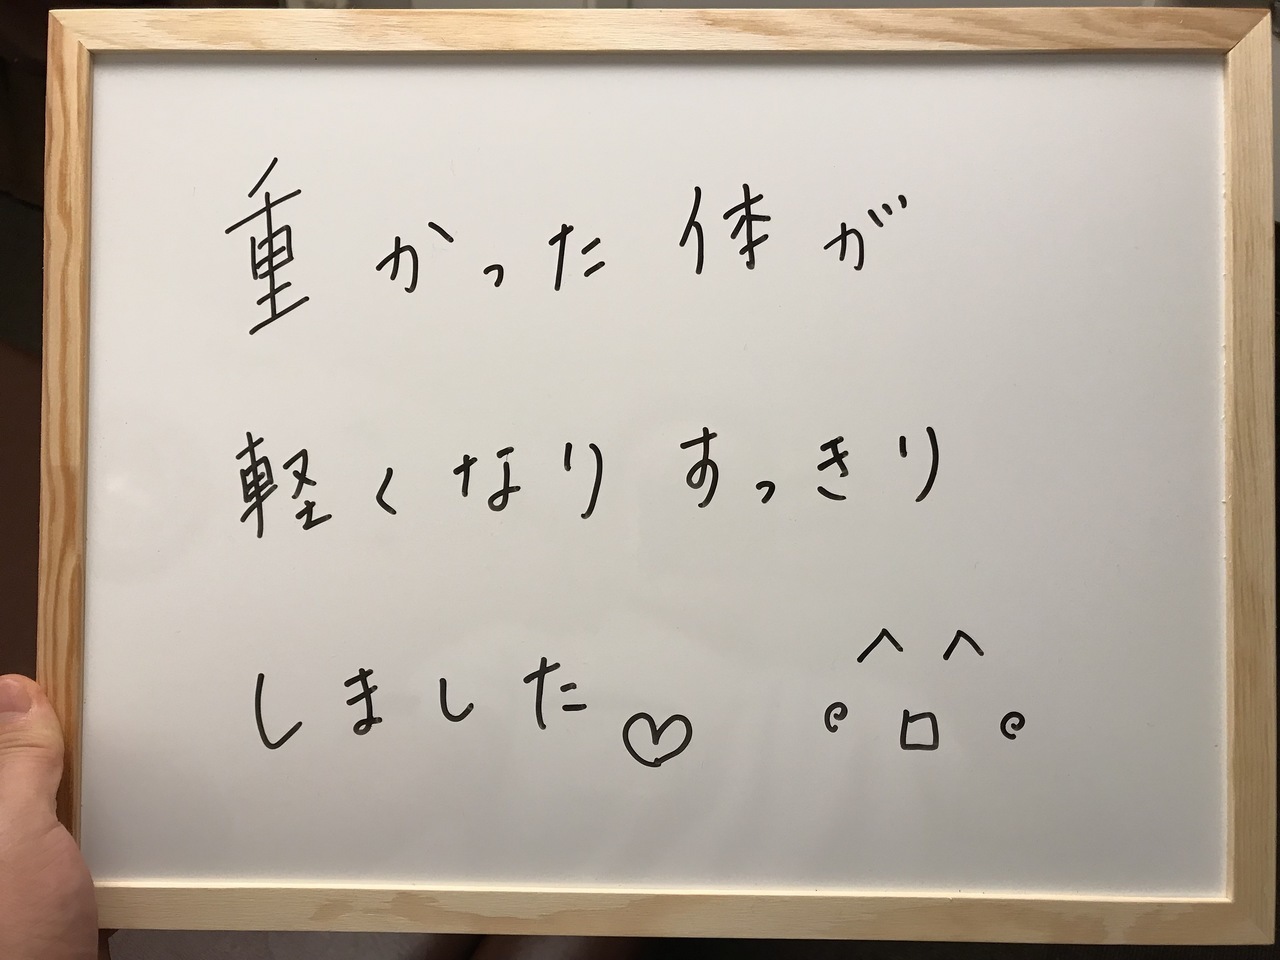 重かった体が
軽くなりすっきり
しました♡